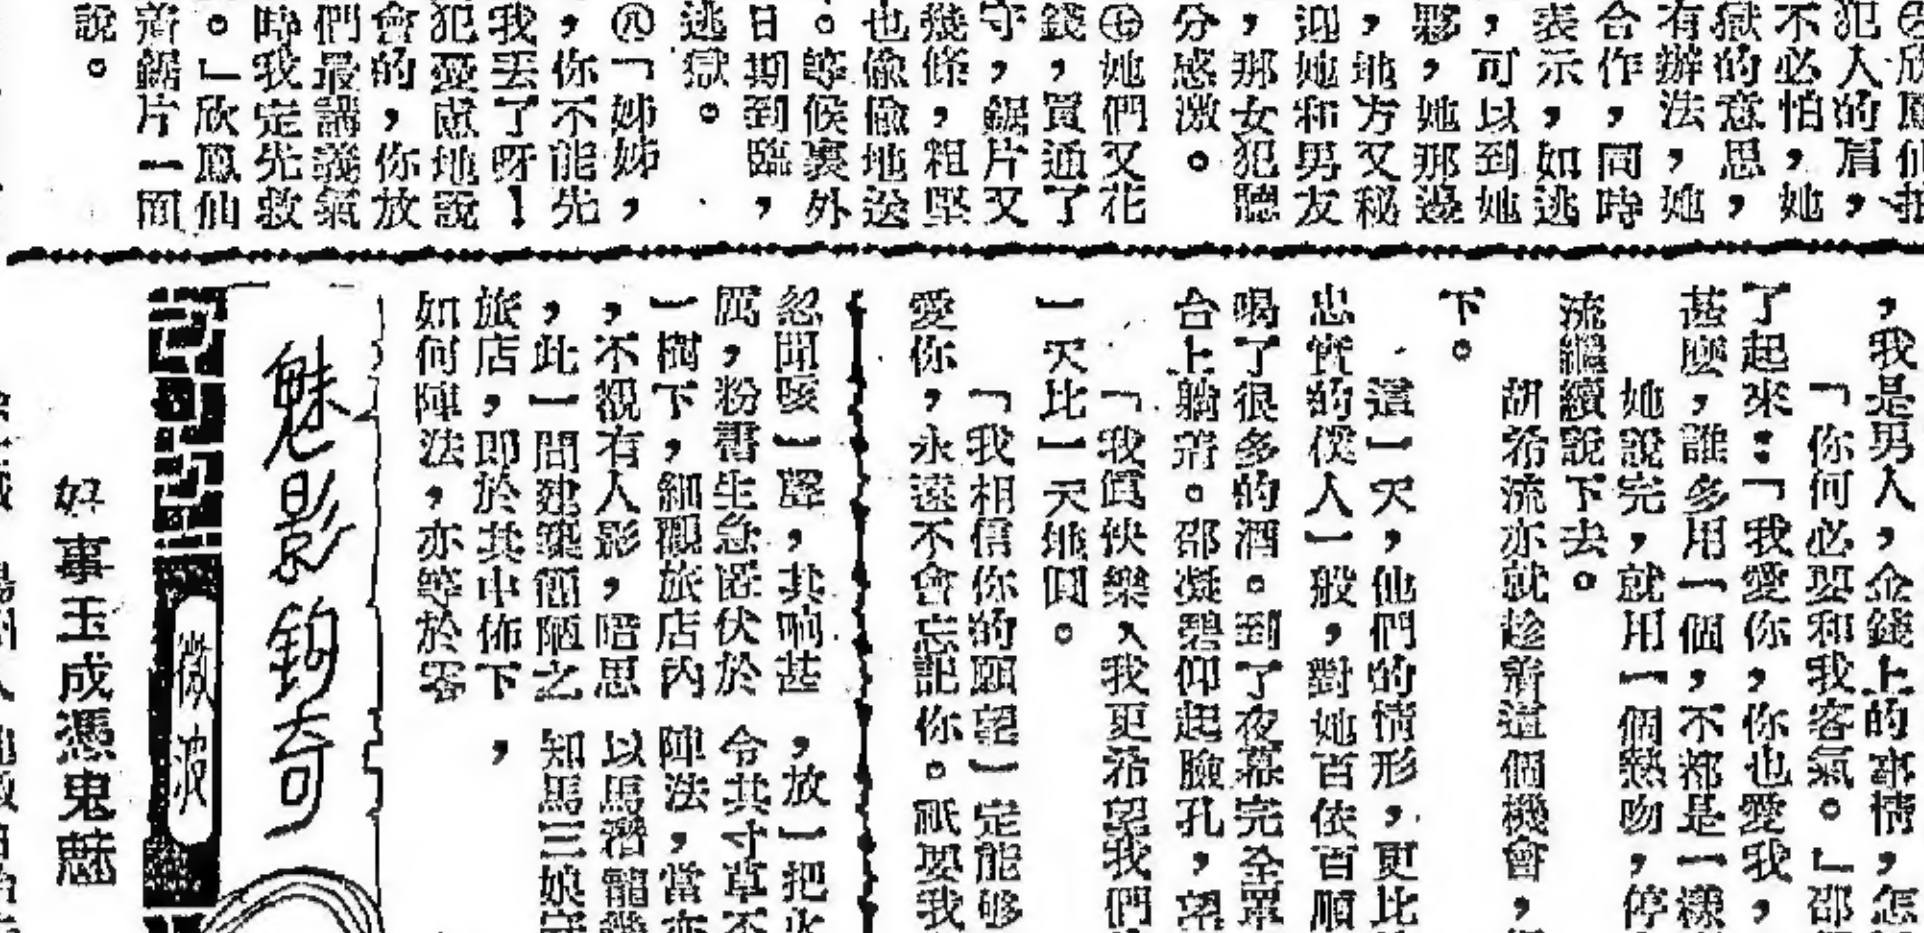 犯人的肩，
不必怕，她
獄的意思，
有辦法，她
合作，同時
表示，如逃
，可以到她
夥，她那邊
，地方又秘
迎她和男友
，那女犯聽
分感激。
㊆她們又花
錢，買通了
守，鋸片又
幾條，粗堅
也偷偷地送
。等候裏外
日期到臨，
逃獄。
㊇「姊姊，
，你不能先
我丟了呀！
犯憂慮地說
會的，你放
們最講義氣
時我定先救
。」欣鳳仙
着鋸片一面
說。
，我是男人，金錢上的事情，怎
「你何必要和我客氣。」邵
了起來：「我愛你，你也愛我，
甚麼，誰多用一個，不都是一樣
她說完，就用一個熱吻，停
流繼續說下去。
胡希流亦就趁着這個機會，
下。
這一天，他們的情形，更比
忠實的僕人一般，對她百依百順
喝了很多的酒。到了夜幕完全罩
台上躺着。邵凝碧仰起臉孔，望
「我眞快樂，我更希望我們
一天比一天地圓。
「我相信你的願望一定能够
愛你，永遠不會忘記你。祇要我
忽聞咳一聲，其响甚
厲，粉書生急匿伏於
一樹下，細觀旅店內
，不覩有人影，唔思
，此一間建築簡陋之
旅店，即於其中佈下
如何陣法，亦等於零
，
，放一把火
令其寸草不
陣法，當亦
以馬潛龍
知馬三娘
魅影鈎奇
微波
好事玉成憑鬼魅